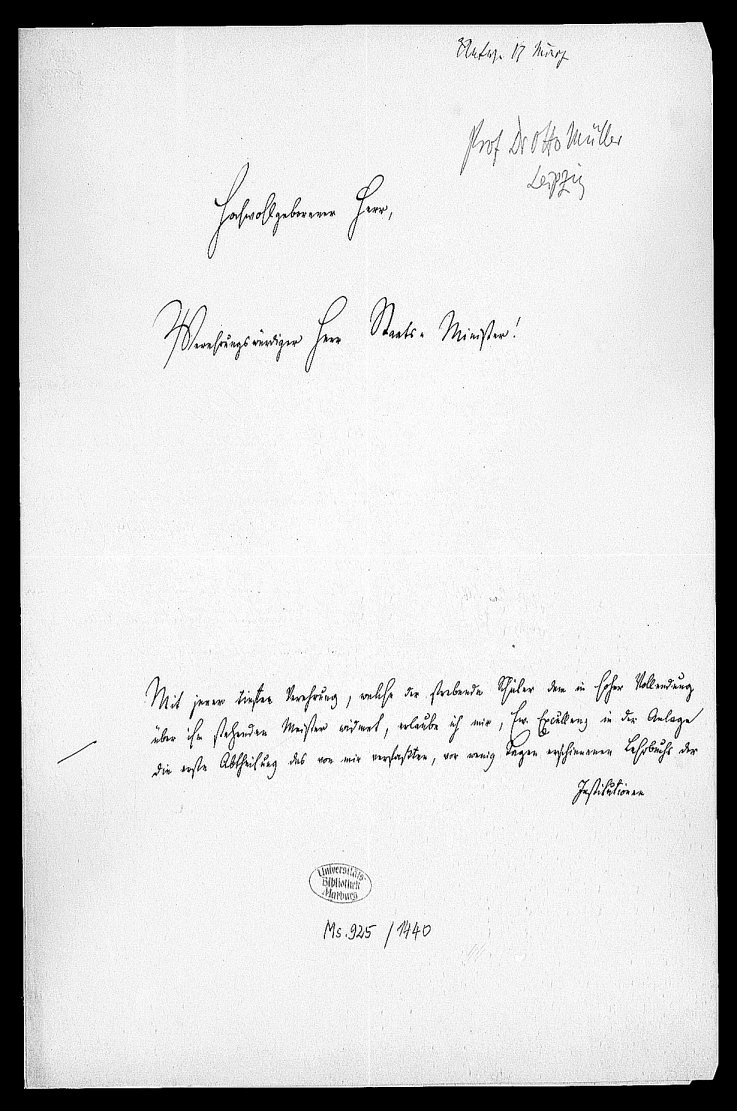 Antw. 17 März
Prof Dr Otto Müller
Leipzig
Hochwohlgeborener Herr,
Verehrungswürdiger Herr Staats-Minister!
Mit jener tiefsten Verehrung, welche der strebende Schüler dem in hoher Vollendung
über ihm stehenden Meister widmet, erlaube ich mir, Ew. Excellenz in der Anlage
die erste Abtheilung des von mir verfaßten, vor wenig Tagen erschienenen Lehrbuchs der
Institutionen
Universitäts-
Bibliothek
Marburg
Ms. 925 / 1440